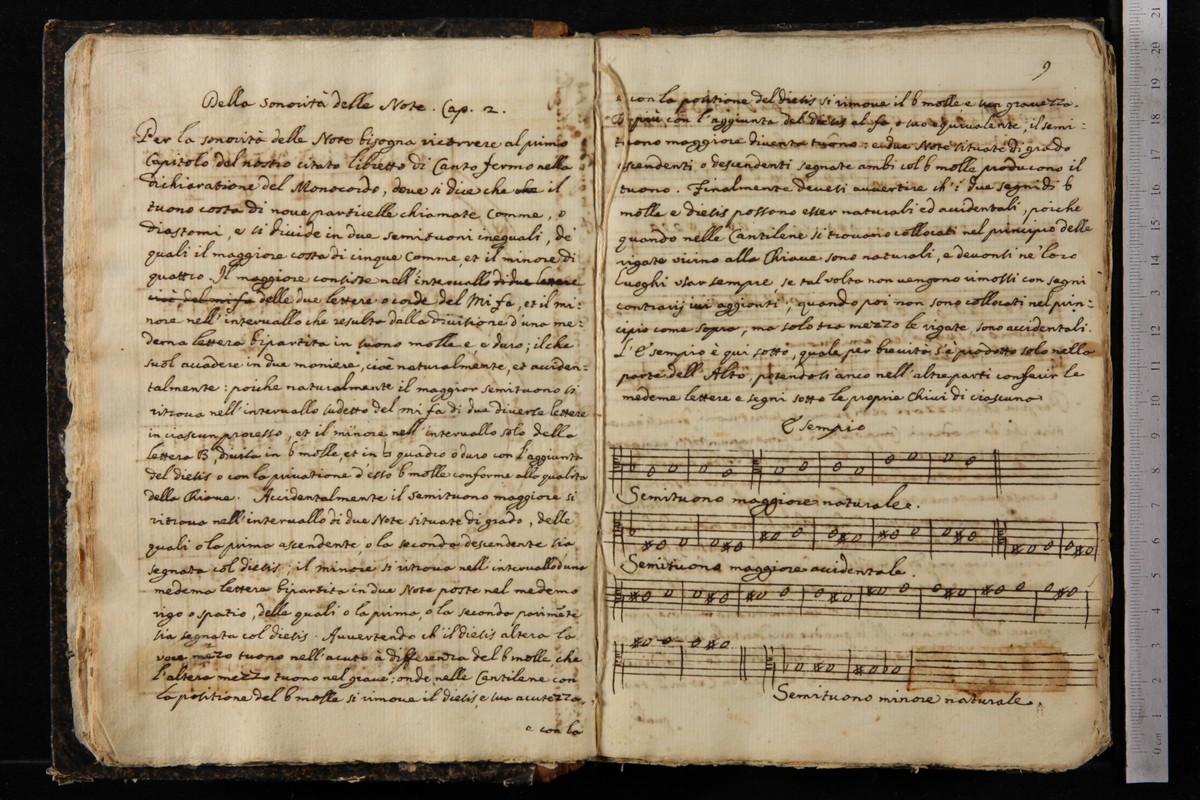 Della sonorità delle Note. Cap. 2.
Per la sonorità delle Note bisogna ricorrere al primo
Capitolo del nostro citato libretto di Canto fermo nella
dichiaratione del Monocordo, dove si dice che che il
tuono costa di nove particelle chiamate Comme, o
Diastomi, e si divide in due semituoni ineguali, de'
quali il maggiore costa di cinque Comme, et il minore di
quattro. Il maggiore consiste nell'intervallo di due lettere
cioè, del mi fa delle due lettere o corde del Mi fa, et il mi-
nore nell'intervallo che resulta dalla divitione d'una me-
dema lettera bipartita in suono molle e e duro; il che
suol accadere in due moniere, cioè naturalmente, et acciden-
talmente: poiche naturalmente il maggior semituono si
ritrova nell'intervallo sudetto del mi fa di due diverse lettere
in ciascun processo, et il minore nell'intervallo solo della
lettera B, divisa in b molle, et in b quadro o duro con l'aggiunta
del diesis o con la privatione d'esso b molle conforme alla qualità
della Chiave. Accidentalmente il semituono maggiore si
ritrova nell'intervallo di due Note situate di grado, delle
quali o la prima ascendente, o la seconda descendente sia
segnata col diesis; il minore si ritrova nell'intervallo d'una
medema lettera bipartita in due Note poste nel medemo
rigo o spatio, delle quali o la prima, o la seconda parimẽte
sia segnata col diesis. Avvertendo ch'il diesis altera la
voce mezo tuono nell'acuto à differenza del b molle, che
l'altera mezzo tuono nel grave; onde nelle Cantilene con
la positione del b molle si rimove il diesis e sua acutezza,
e con la
9
e con la positione del diesis si rimove il b molle, e sua gravezza.
Di più con l'aggiunta del diesis al fa, o suo equivalente, il semi-
tuono maggiore diventa tuono; e due Note situate di grado
ascendenti o descendenti segnate ambi col b molle producono il
tuono. Finalmente devesi avvertire ch'i due segni di b
molle e diesis possono esser naturali ed accidentali, poiche
quando nelle Cantilene si trovano collocati nel principio delle
rigate vicino alla Chiave sono naturali, e devonsi ne' loro
luoghi usar sempre se tal volta non vengono rimossi con segni
contrarij ivi aggionti; quando poi non sono collocati nel prin-
cipio come sopra, ma solo tra mezzo le rigate, sono accidentali.
L'Esempio è qui sotto, quale per brevità s'è prodotto solo nella
parte dell'Alto, potendosi anco nell'altre parti conferir le
medeme lettere e segni sotto le proprie Chiavi di ciascuna
Esempio
Semituono maggiore naturale.
Semituono maggiore accidentale.
Semituono minore naturale.